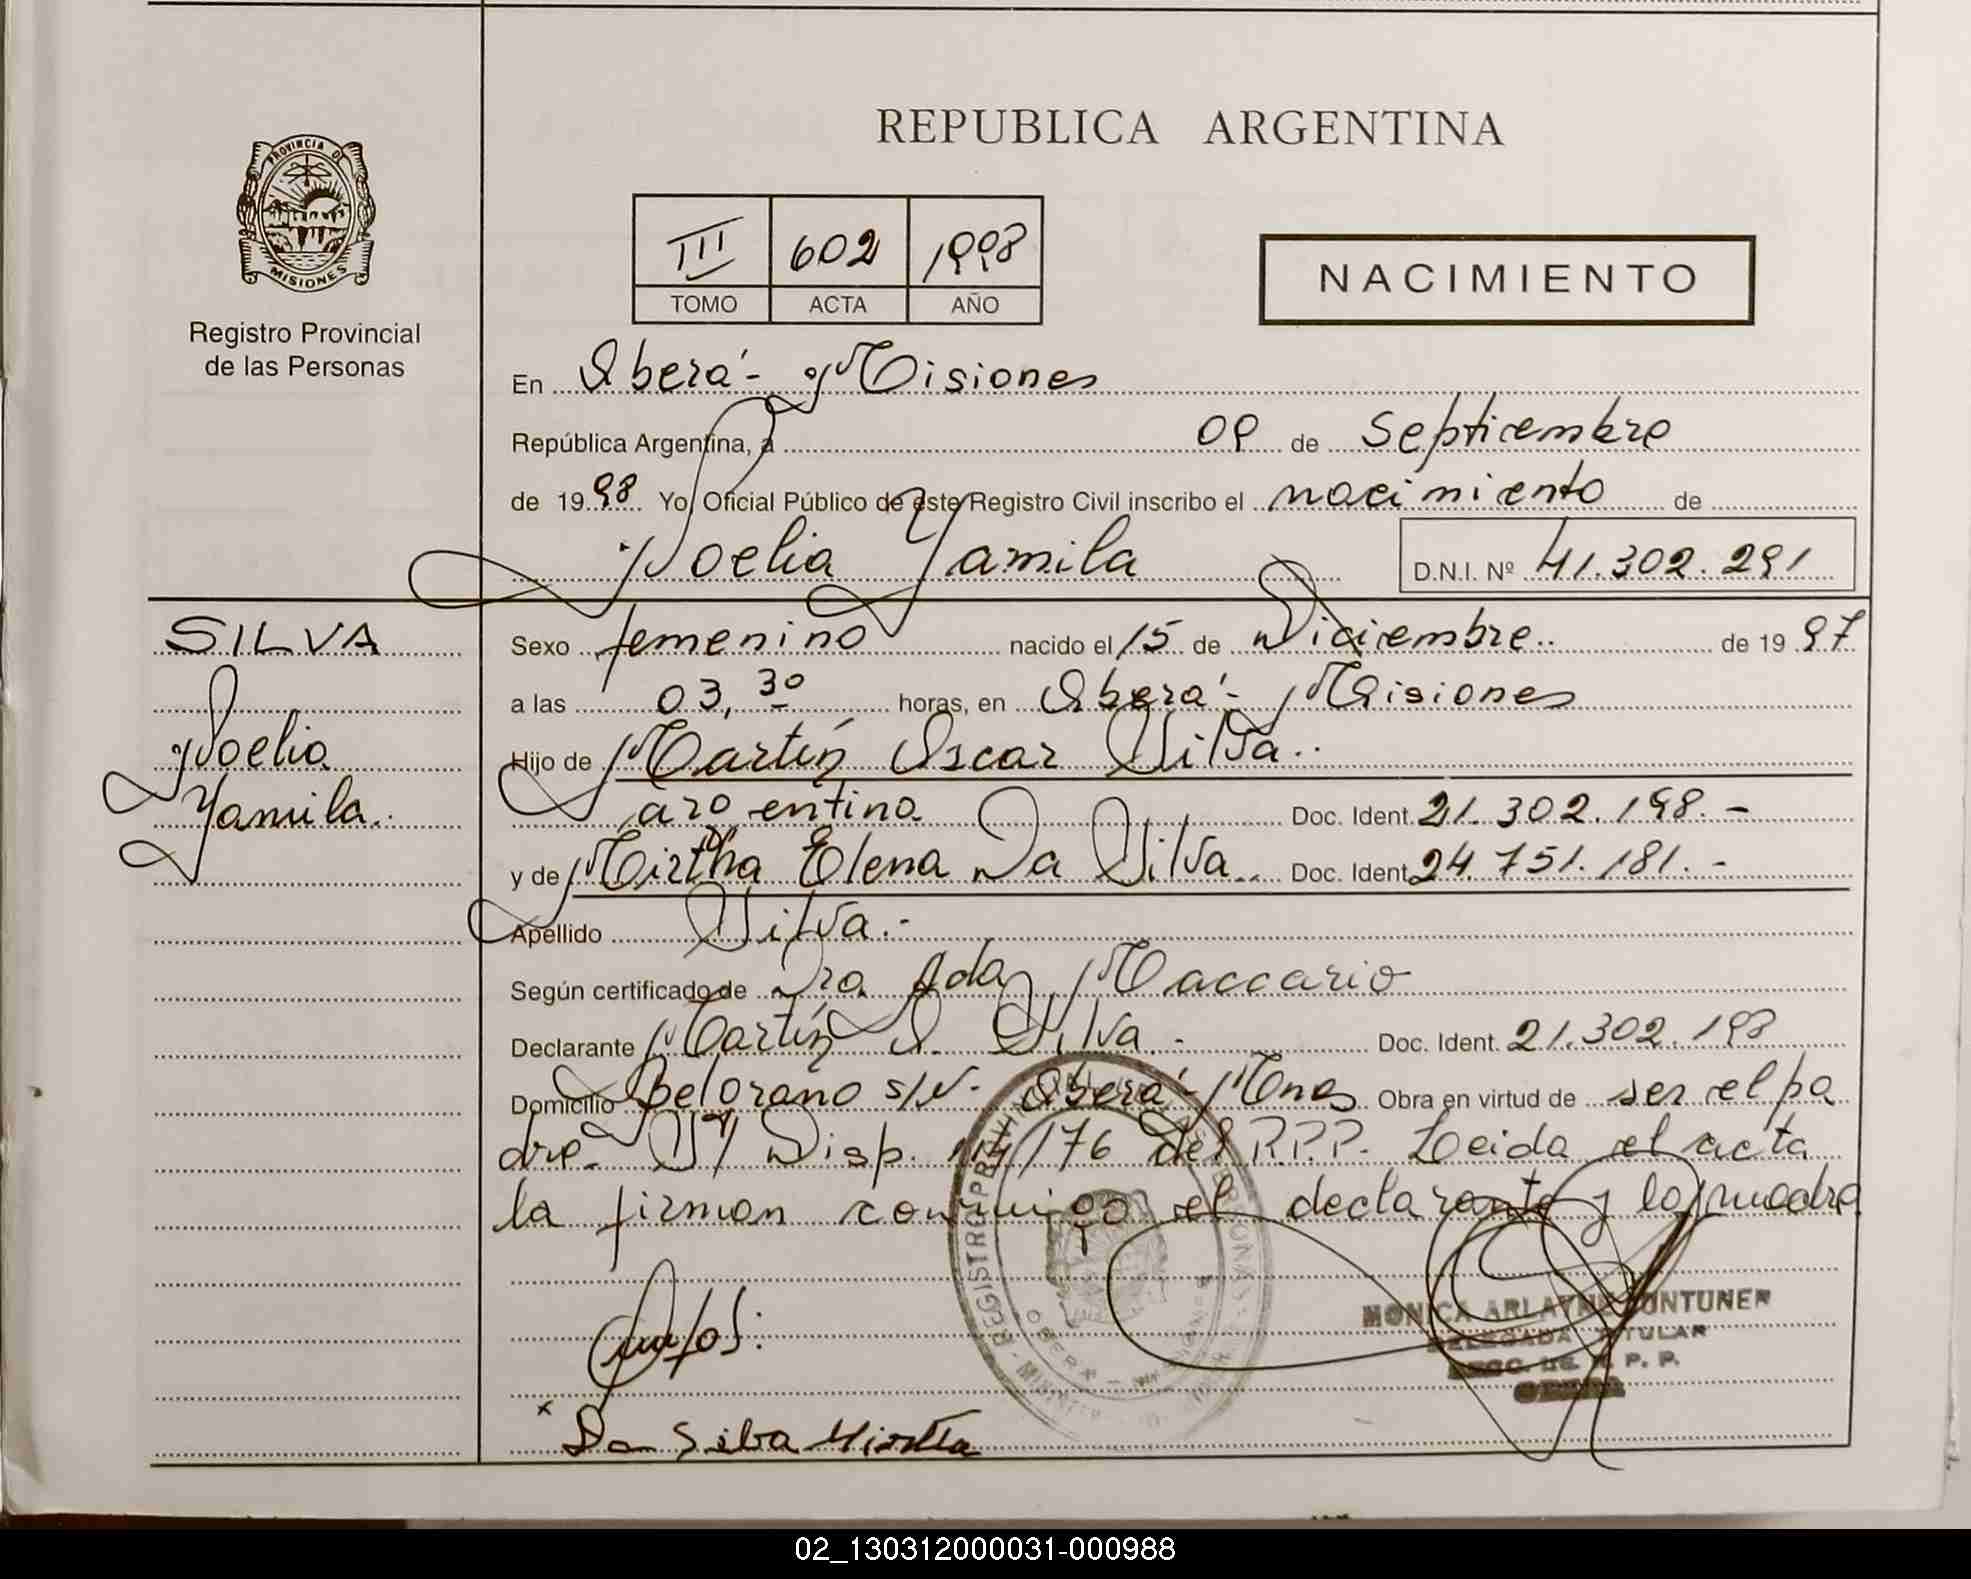 REPUBLICA ARGENTINA
PROVINCIA DE
MISIONES
Registro Provincial
de las Personas
III 602 1998
TOMO ACTA AÑO
NACIMIENTO
En Oberá - Misiones
República Argentina, a 09 de Septiembre
de 1998 Yo, Oficial Público de este Registro Civil inscribo el nacimiento de
Noelia Yamila D.N.I. Nº 41.302.291
SILVA
Noelia
Yamila.
Sexo femenino nacido el 15 de Diciembre.. de 1997
a las 03,30 horas, en Oberá - Misiones
Hijo de Martín Oscar Silva..
argentino Doc. Ident. 21.302.198.-
y de Mirtha Elena Da Silva.. Doc. Ident. 24.751.181.-
Apellido Silva.-
Según certificado de Dra. Ada Maccario
Declarante Martín O. Silva.- Doc. Ident. 21.302.198
Domicilio Belgrano s/N- Oberá - Mnes Obra en virtud de ser el pa
dre- S/ Disp. 114/76 del R.P.P. Leida el acta
la firman conmigo el declarante y la madre
MONICA ARLAYNE
DELEGADA TITULAR
R. P. P.
Da Silva Mirtha
02_130312000031-000988